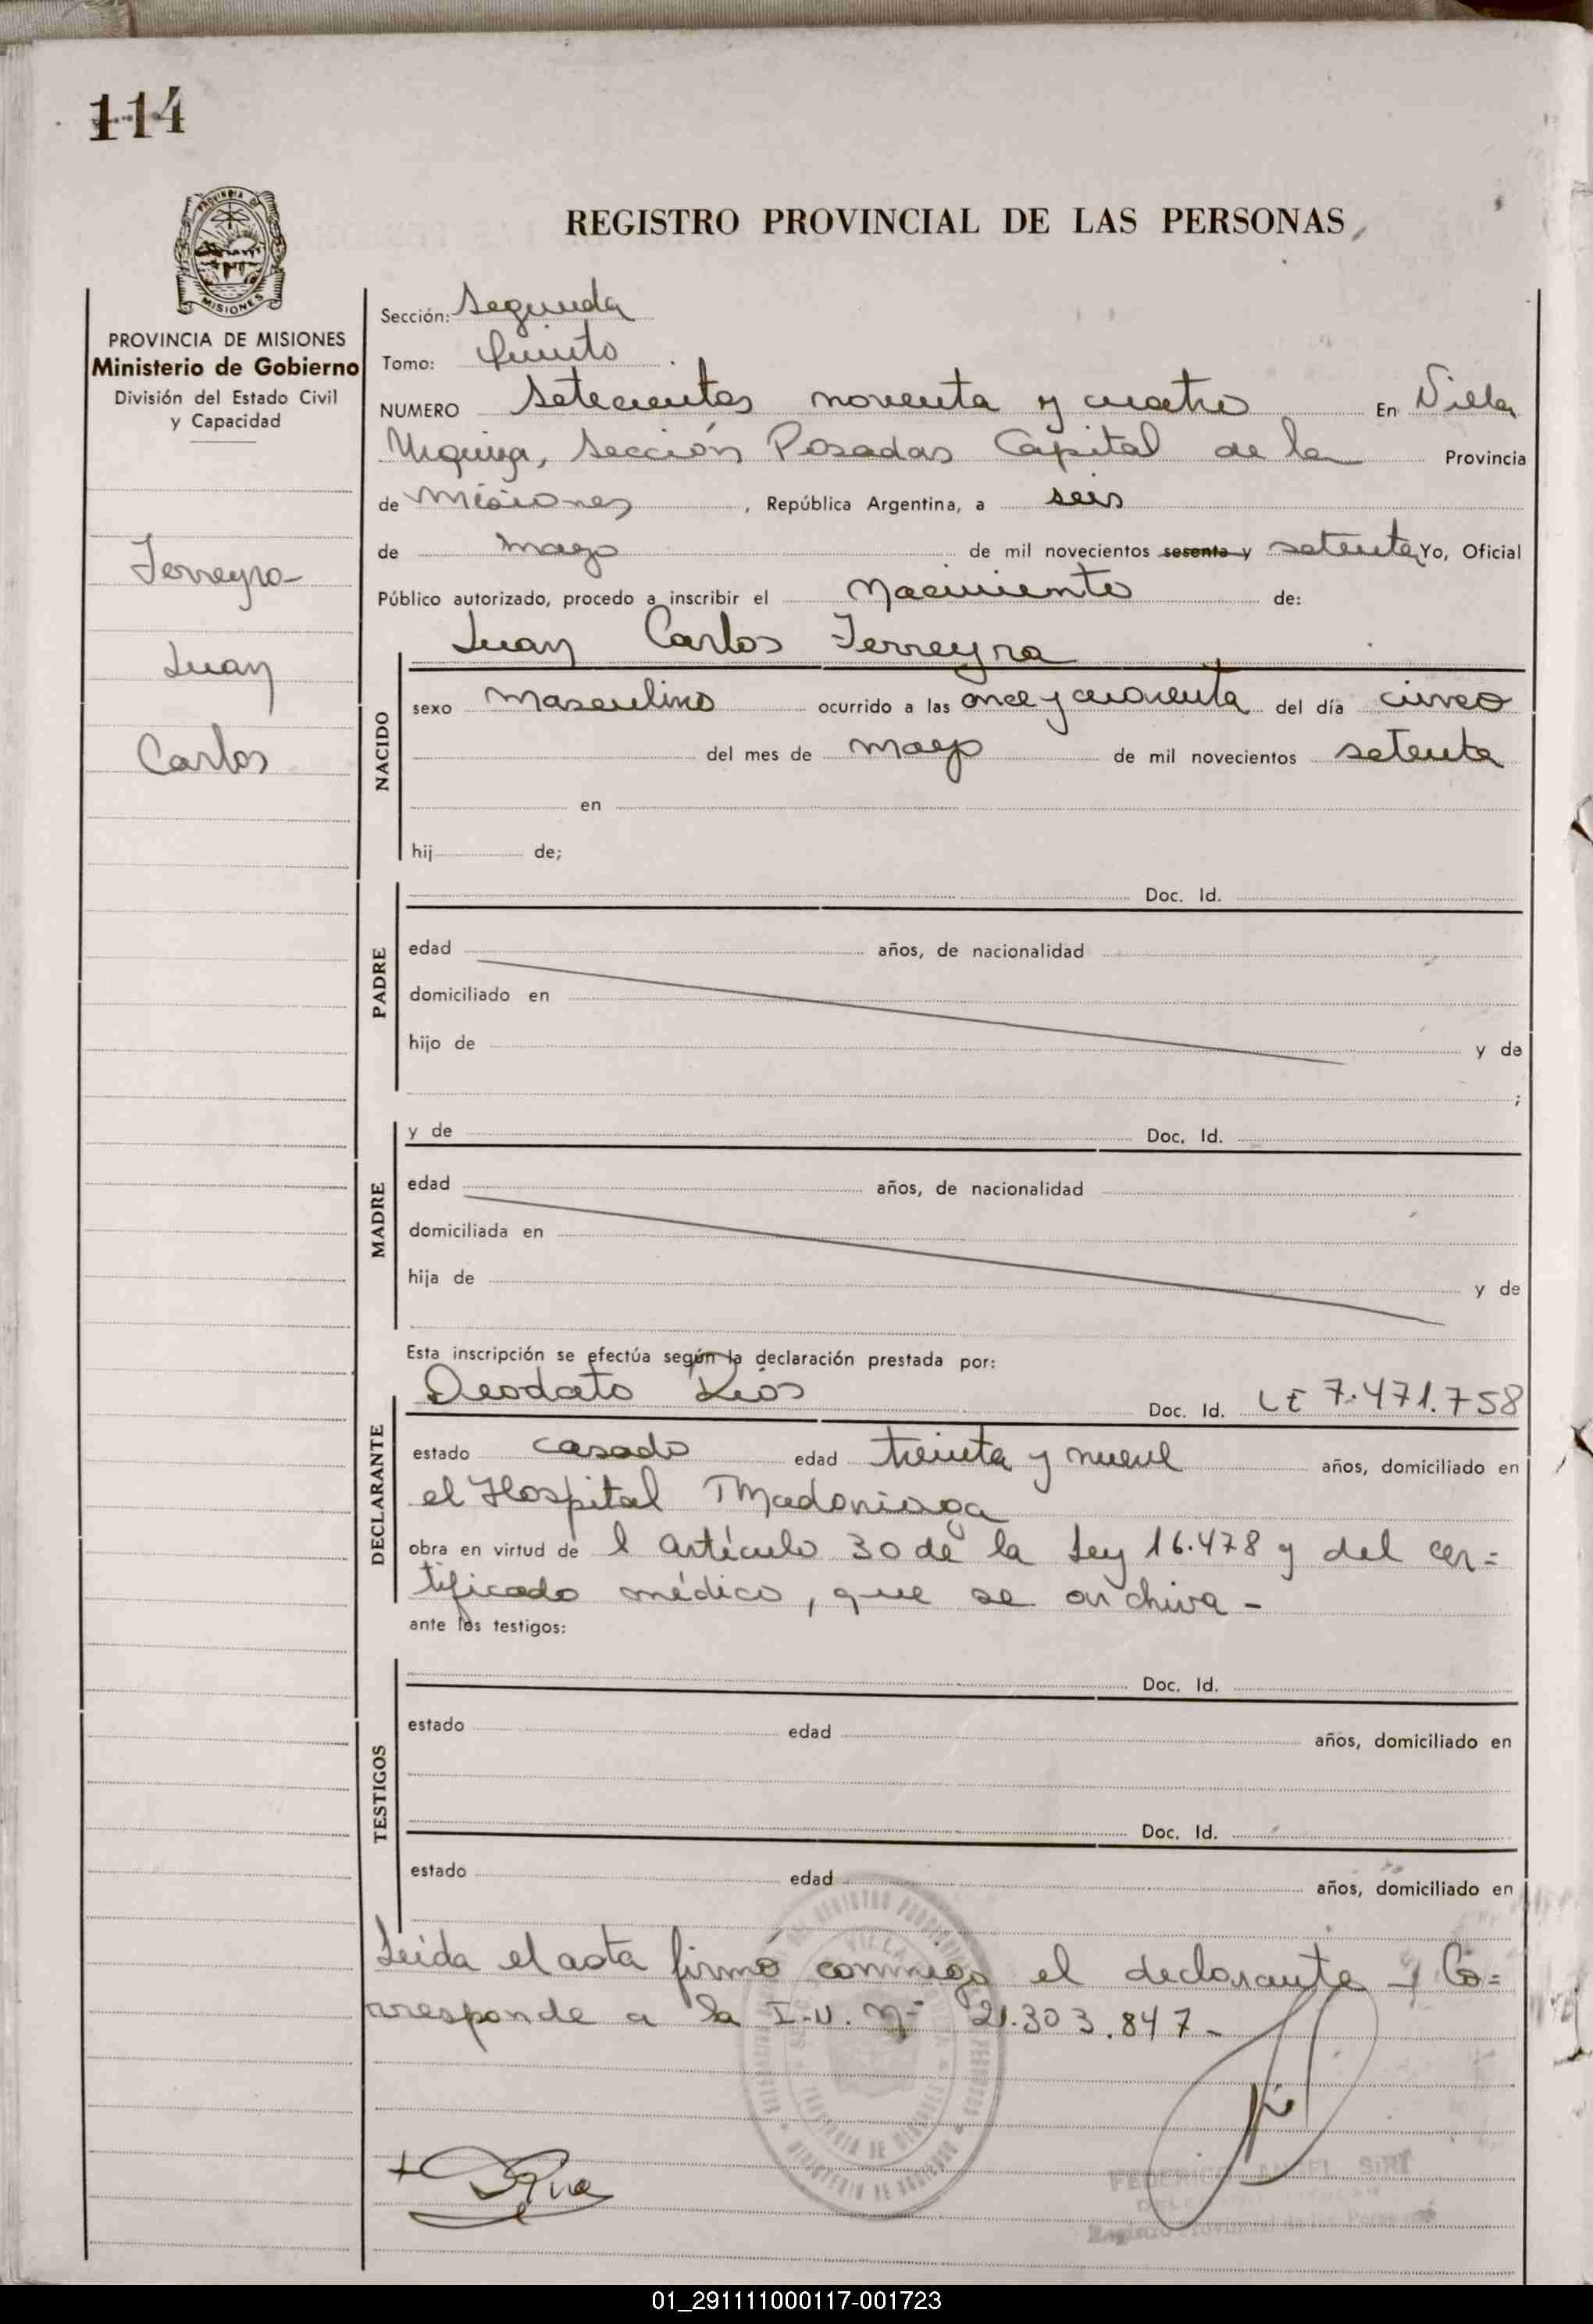 114
REGISTRO PROVINCIAL DE LAS PERSONAS
PROVINCIA DE
MISIONES
PROVINCIA DE MISIONES
Ministerio de Gobierno
División del Estado Civil
y Capacidad
Ferreyra
Juan
Carlos
Sección: Segunda
Tomo: Quinto
NUMERO Setecientos noventa y cuatro En Villa
Urquiza, Sección Posadas Capital de la Provincia
de Misiones, República Argentina, a seis
de mayo de mil novecientos sesenta y setenta Yo, Oficial
Público autorizado, procedo a inscribir el Nacimiento de:
Juan Carlos Ferreyra
NACIDO
sexo Masculino ocurrido a las once y cuarenta del día cinco
del mes de mayo de mil novecientos setenta
en
hij de;
PADRE
Doc. Id.
edad años, de nacionalidad
domiciliado en
hijo de y de
;
MADRE
y de Doc. Id.
edad años, de nacionalidad
domiciliada en
hija de y de
Esta inscripción se efectúa según la declaración prestada por:
DECLARANTE
Deodato Rios Doc. Id. LE 7.471.758
estado casado edad treinta y nueve años, domiciliado en
el Hospital Madariaga
obra en virtud de l artículo 30 de la Ley 16.478 y del cer=
tificado médico, que se archiva -
ante los testigos:
TESTIGOS
Doc. Id.
estado edad años, domiciliado en
Doc. Id.
estado edad años, domiciliado en
Leida el acta firmó conmigo el declarante - Co=
rresponde a la I.N. Nº 21.303.847-
FEDERICO ANGEL SIRI
Registro Provincial de las Personas
01_291111000117-001723